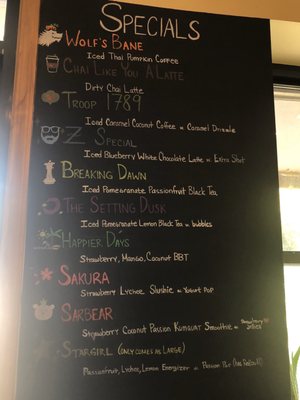 SPECIALS
WOLF'S BANE
Iced Thai Pumpkin Coffee
CHAI LIKE YOU A LATTE
Dirty Chai Latte
TROOP 1789
Iced Caramel Coconut Coffee w. Caramel Drizzle
Z SPECIAL
Iced Blueberry White Chocolate Latte w. Extra Shot
BREAKING DAWN
Iced Pomegranate Passionfruit Black Tea
THE SETTING DUSK
Iced Pomegranate Lemon Black Tea w. bubbles
HAPPIER DAYS
Strawberry, Mango, Coconut BBT
SAKURA
Strawberry Lychee Slushie w. Yogurt Pop
SARBEAR
Strawberry Coconut Passion Kumquat Smoothie w. Strawberry
STARGIRL (ONLY COMES AS LARGE)
Passionfruit, Lychee, Lemon Energizer w. Passion Pop